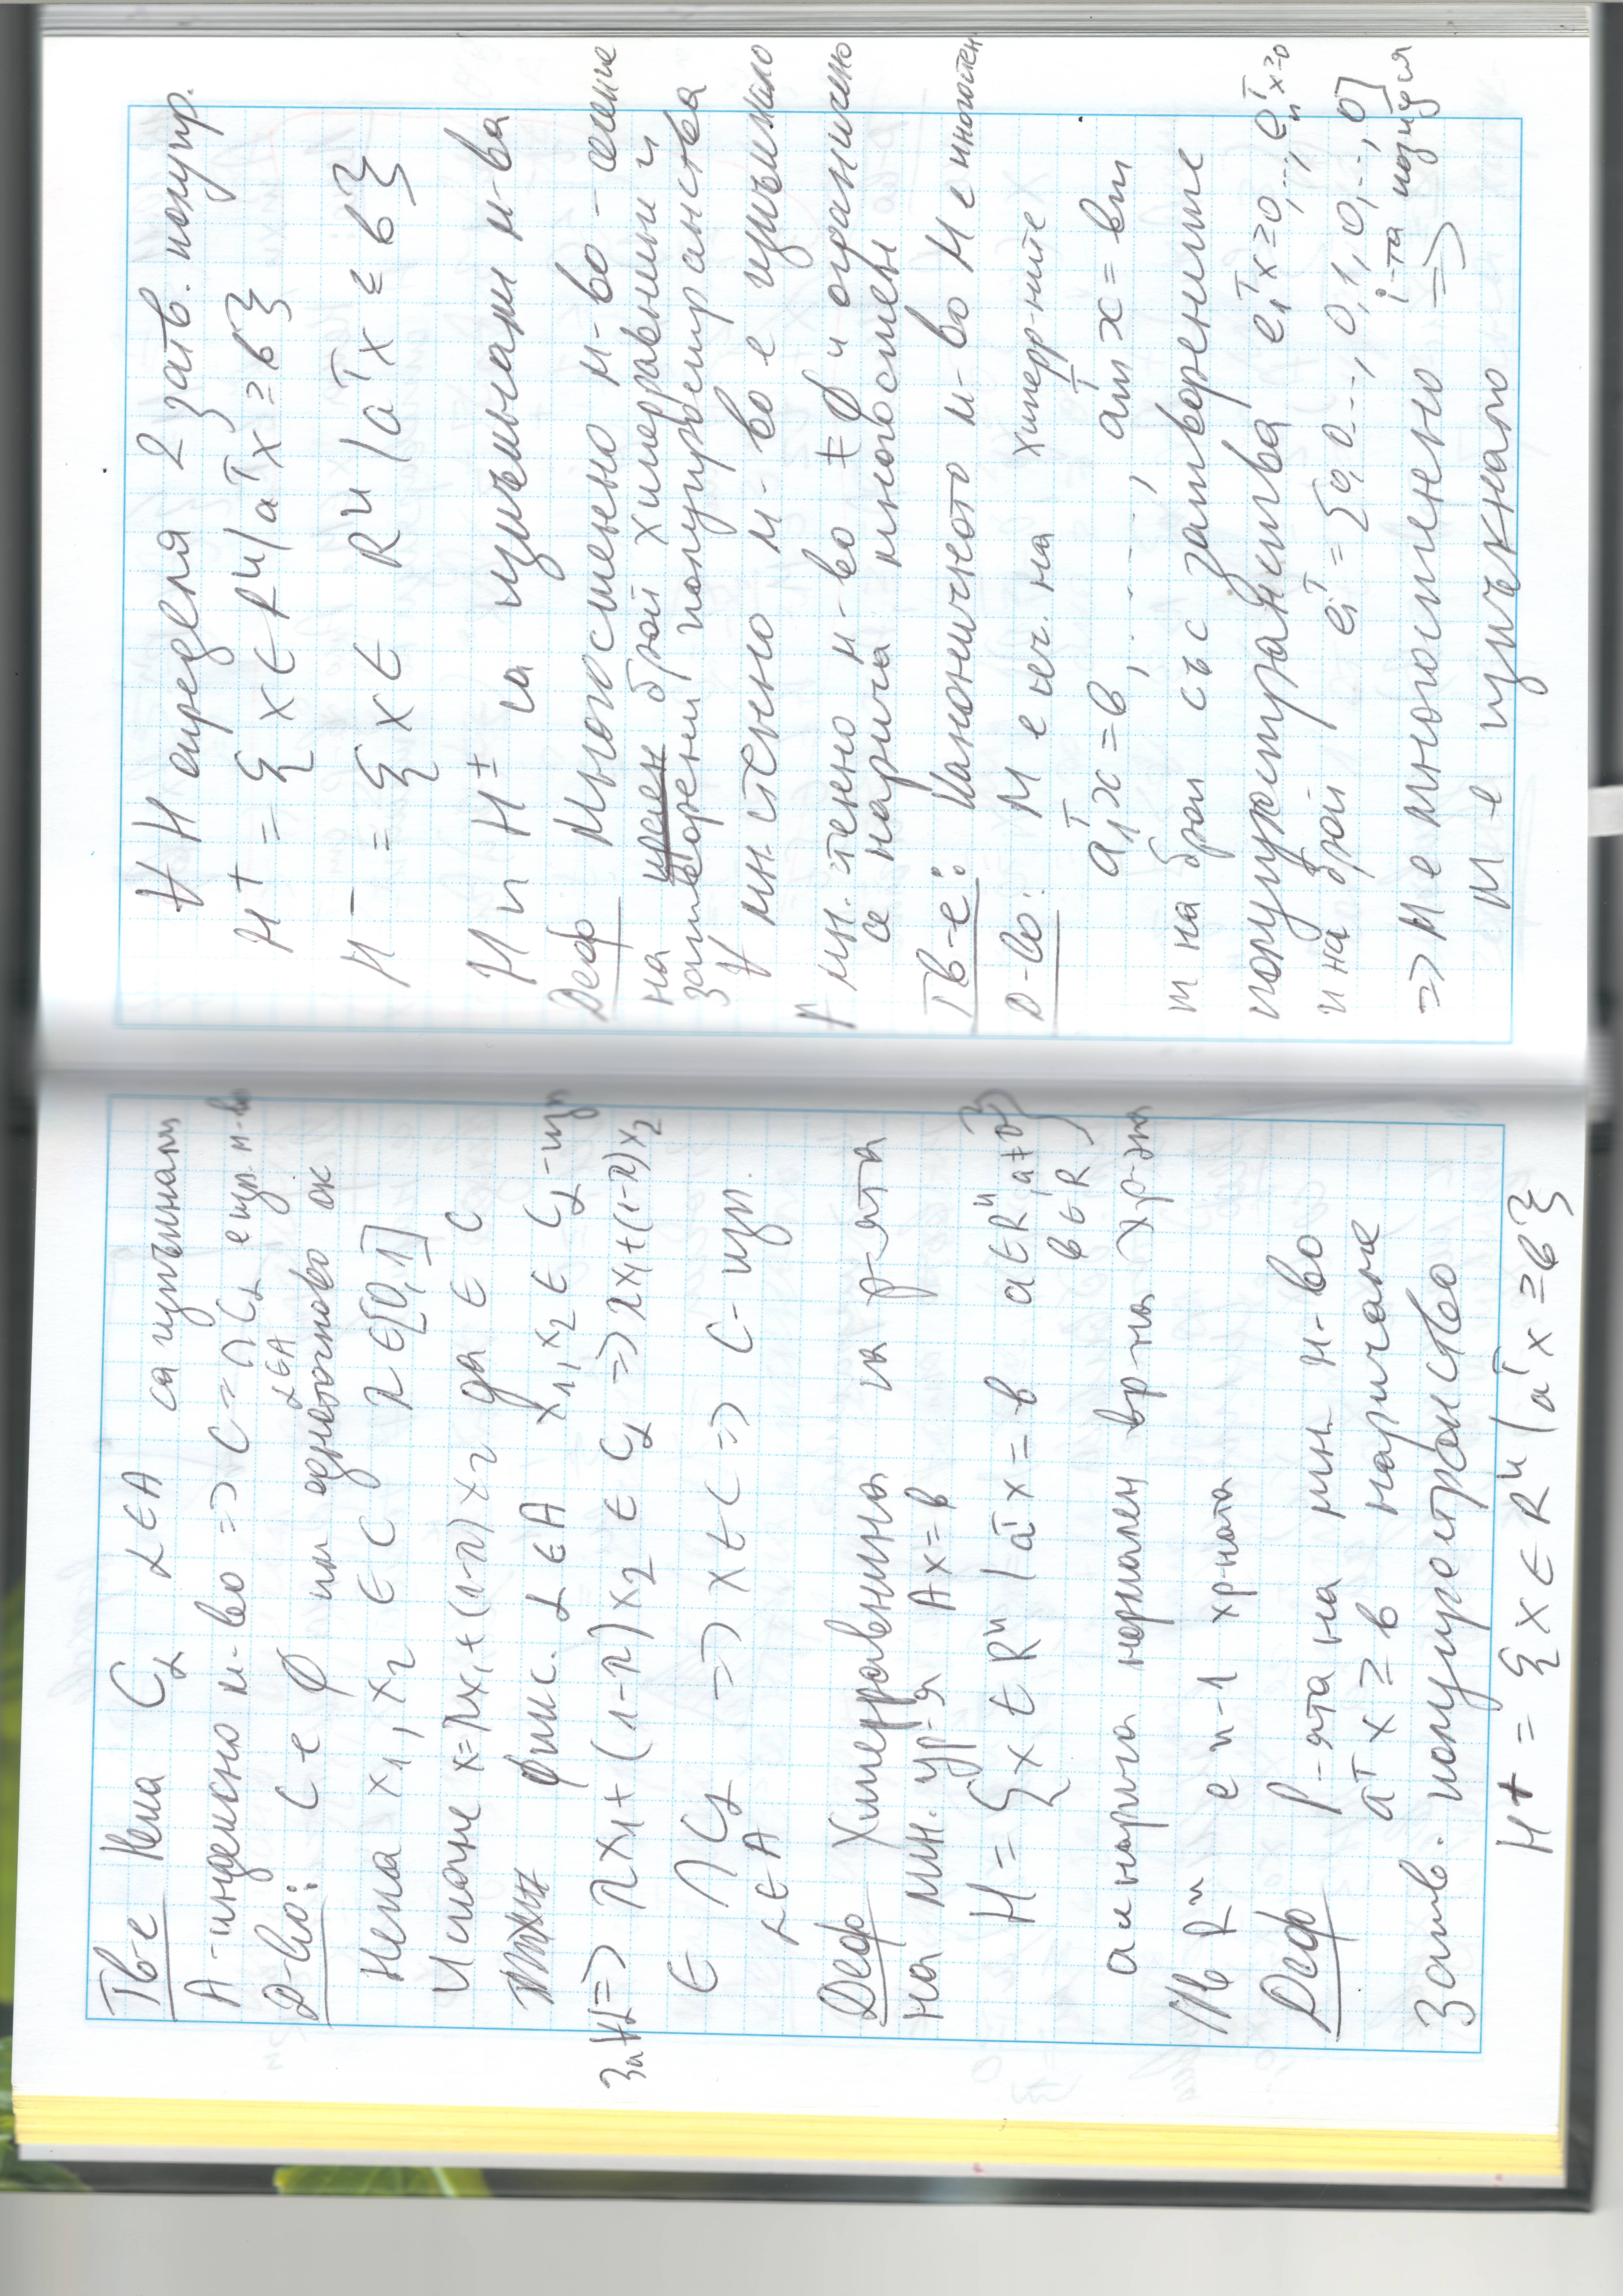 Тв-е Нека C_α α∈A са изпъкнали
A-индексно м-во => C = ∩ C_α е изп. м-во
α∈A
Д-во: C e ∅ или едноточково ок
Нека x₁, x₂ ∈ C λ∈[0,1]
Искаме x=λx₁+(1-λ)x₂ да ∈ C
фикс. α∈A x₁,x₂ ∈ C_α-изп
За ∀α => λx₁+(1-λ)x₂ ∈ C_α => λx₁+(1-λ)x₂
∈ ∩ C_α => x∈C => C-изп.
α∈A
Деф Хиперравнина са р-ята
на лин. ур-я Ax=в
H = {x∈Rⁿ | aᵀx=в a∈Rⁿ, a≠0}
в∈R
a се нарича нормален в-р на хр-на
/\\в Rⁿ е n-1 хр-ната
Деф Р-ята на лин. н-во
aᵀx≥в наричаме
Затв. полупространство
H+ = {x∈Rⁿ | aᵀx≥в}
∀ H определя 2 затв. полупр.
H+ = {x∈Rⁿ | aᵀx≥в}
H- = {x∈Rⁿ | aᵀx≤в}
H и H± са изпъкнали м-ва
Деф Многостенно м-во - сечение
на краен брой хиперравнини и
затворени полупространства
∀ мн. стенно м-во е изпъкнало
∀ мн. стенно м-во ≠∅ и ограничено
се нарича многостен
Тв-е: Каноничното м-во M е многостен.
Д-во: M е сеч. на хиперр-ните
a₁ᵀx=в₁, ...., aₘᵀx=вₘ
m на брой със затворените
полупространства e₁ᵀx≥0,...,eₙᵀx≥0
n на брой eᵢᵀ=[0,0...,0,1,0,...,0]
i-та позиция
=> M е многостенно =>
M-е изпъкнало